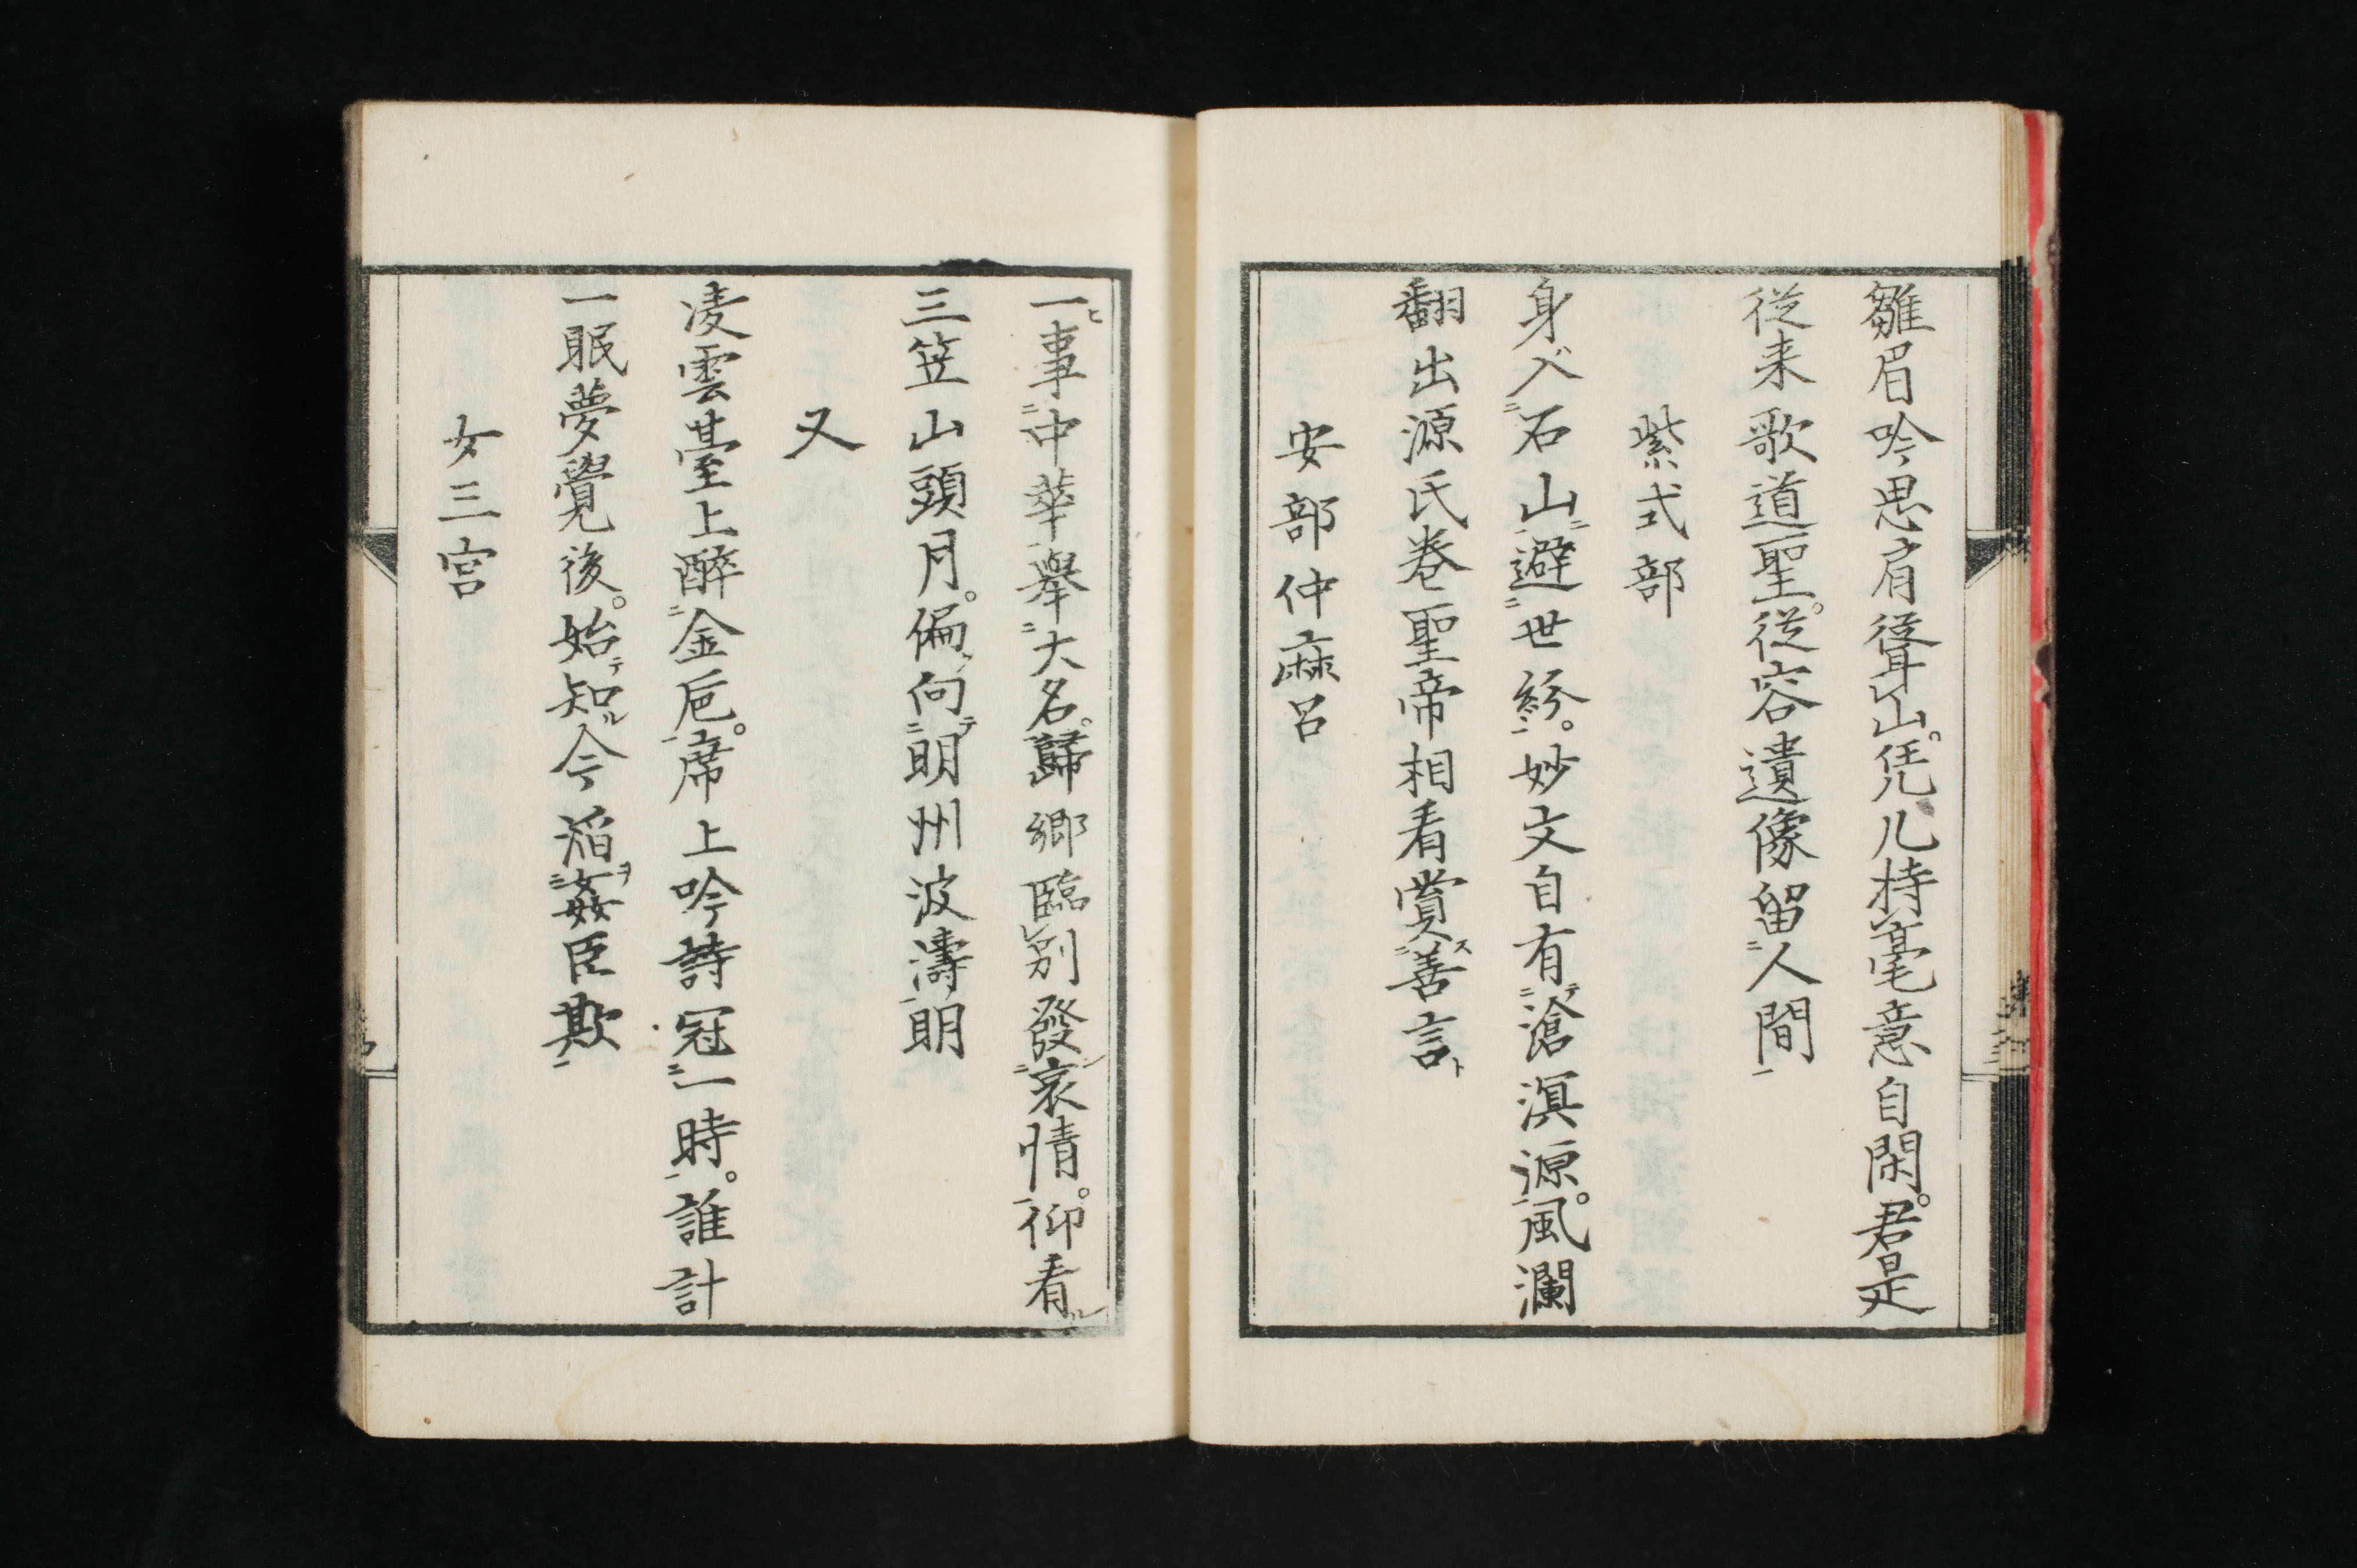 雛眉吟思肩聳山。凭几持毫意自閑。君是
従来歌道聖。従容遺像留人間
紫式部
身入石山避世紛。妙文自有滄溟源。風瀾
翻出源氏巻聖帝相看賞善言
安部仲麻呂
一事中華擧大名。歸鄉臨別發哀情。仰看
三笠山頭月。偏向明州波濤明
又
凌雲臺上醉金巵。席上吟詩冠一時。誰計
一眠夢覺後。始知今陷姦臣欺
女三宮